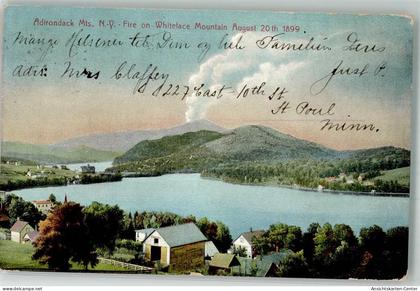 Adirondack Mts, N.Y. - Fire on Whiteface Mountain August 20th 1899
Mange Hilsener til Dem og hele Familien Deres
Adr. Mrs Claffey just P.
1227 East 10th St
St Paul
Minn.
39531431 Ansichtskarten-Center.de